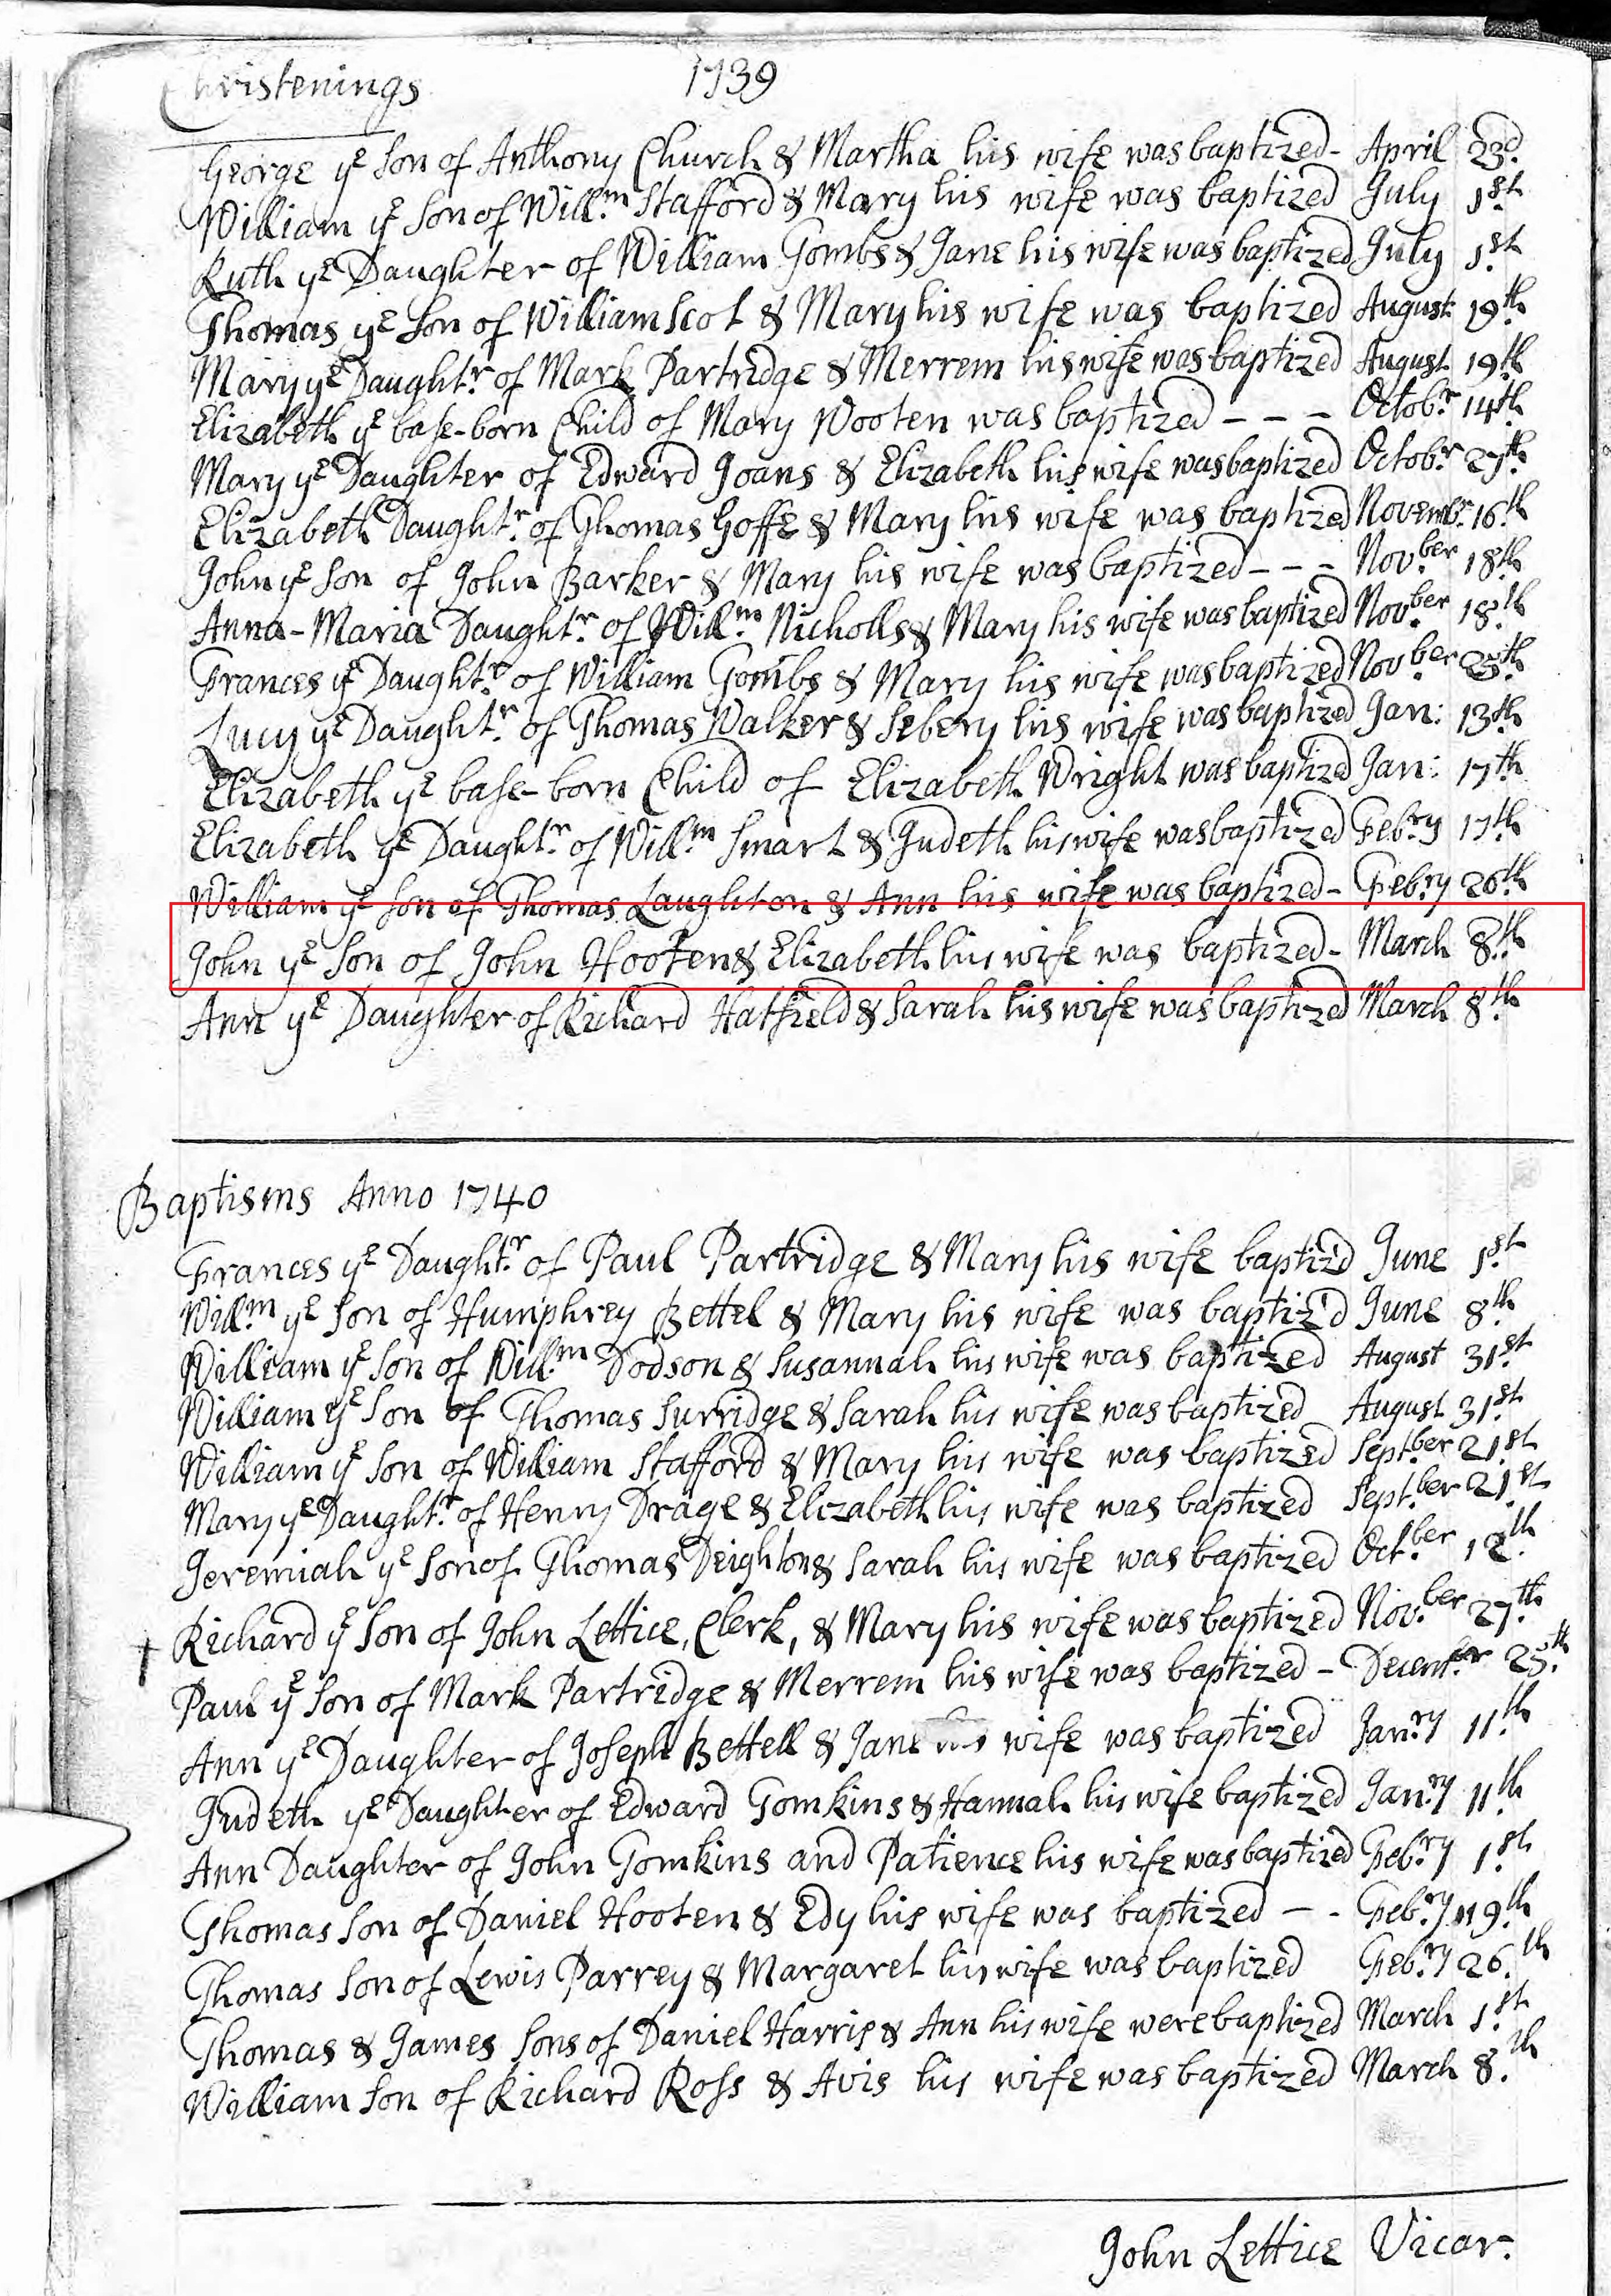 Christenings 1739
George ye Son of Anthony Church & Martha his wife was baptized - April 23d.
William ye Son of Will:m Stafford & Mary his wife was baptized July 1st.
Ruth ye Daughter of William Tombs & Jane his wife was baptized July 1st.
Thomas ye Son of William Scot & Mary his wife was baptized August 19th.
Mary ye Daught:r of Mark Partridge & Merrem his wife was baptized August 19th.
Elizabeth ye base-born Child of Mary Wooten was baptized - - - Octob:r 14th.
Mary ye Daughter of Edward Joans & Elizabeth his wife was baptized Octob:r 27th.
Elizabeth Daught:r of Thomas Goffe & Mary his wife was baptized Novemb:r 16th.
John ye Son of John Barker & Mary his wife was baptized - - - Nov:ber 18th.
Anna-Maria Daught:r of Will:m Nicholls & Mary his wife was baptized Nov:ber 18th.
Frances ye Daught:r of William Tombs & Mary his wife was baptized Nov:ber 25th.
Lucy ye Daught:r of Thomas Walker & Sebery his wife was baptized Jan: 13th.
Elizabeth ye base-born Child of Elizabeth Wright was baptizd Jan: 17th.
Elizabeth ye Daught:r of Will:m Smart & Judeth his wife was baptized Feb:ry 17th.
William ye Son of Thomas Laughton & Ann his wife was baptized - Feb:ry 26th.
John ye Son of John Hooten & Elizabeth his wife was baptized - March 8th.
Ann ye Daughter of Richard Hatfield & Sarah his wife was baptized March 8th.
Baptisms Anno 1740
Frances ye Daught:r of Paul Partridge & Mary his wife baptiz'd June 1st.
Will:m ye Son of Humphrey Bettel & Mary his wife was baptiz'd June 8th.
William ye Son of Will:m Dodson & Susannah his wife was baptized August 31st.
William ye Son of Thomas Surridge & Sarah his wife was baptized August 31st.
William ye Son of William Stafford & Mary his wife was baptized Sept:ber 21st.
Mary ye Daught:r of Henry Drage & Elizabeth his wife was baptized Sept:ber 21st.
Jeremiah ye Son of Thomas Deighton & Sarah his wife was baptized Oct:ber 12th.
Richard ye Son of John Lettice, Clerk, & Mary his wife was baptized Nov:ber 27th.
Paul ye Son of Mark Partridge & Merrem his wife was baptized - Decemb:r 25th.
Ann ye Daughter of Joseph Bettell & Jane his wife was baptized Jan:ry 11th.
Judeth ye Daughter of Edward Tomkins & Hannah his wife baptized Jan:ry 11th.
Ann Daughter of John Tomkins and Patience his wife was baptized Feb:ry 1st.
Thomas Son of Daniel Hooten & Edy his wife was baptized - - Feb:ry 19th.
Thomas Son of Lewis Parrey & Margaret his wife was baptized Feb:ry 26th.
Thomas & James Sons of Daniel Harris & Ann his wife were baptized March 1st.
William Son of Richard Ross & Avis his wife was baptized March 8th.
John Lettice Vicar.